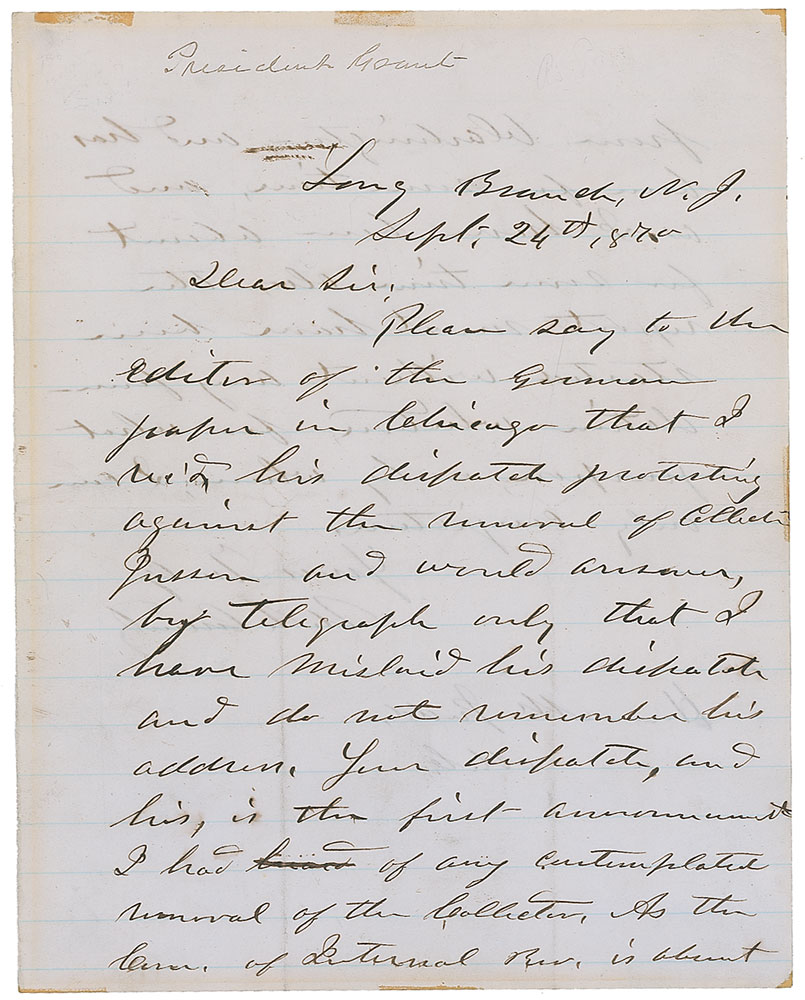 President Grant
Long Branch, N.J.
Sept. 24th, 1870
Dear Sir,
Please say to the
editor of the German
paper in Chicago that I
rec'd, his dispatch protesting
against the removal of Collector
Jussen and would answer,
by telegraph only that I
have mislaid his dispatch
and do not remember his
address. Your dispatch, and
his, is the first announcement
I had heard of any contemplated
removal of the Collector. As the
Com. of Internal Rev. is absent